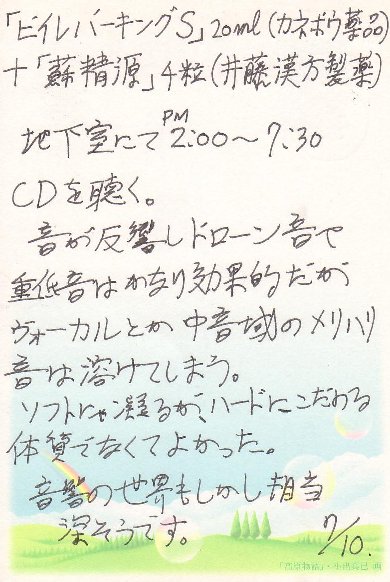 「ビイレバーキングS」20ml(カネボウ薬品)
+「蘇精源」4粒(井藤漢方製薬)
PM
地下室にて2:00〜7:30
CDを聴く。
音が反響しドローン音で
重低音はかなり効果的だが
ヴォーカルとか中音域のメリハリ
音は溶けてしまう。
ソフトにゃ凝るが、ハードにこだわる
体質でなくてよかった。
音響の世界もしかし相当
深そうです。
7/10.
「高原物語」・
画